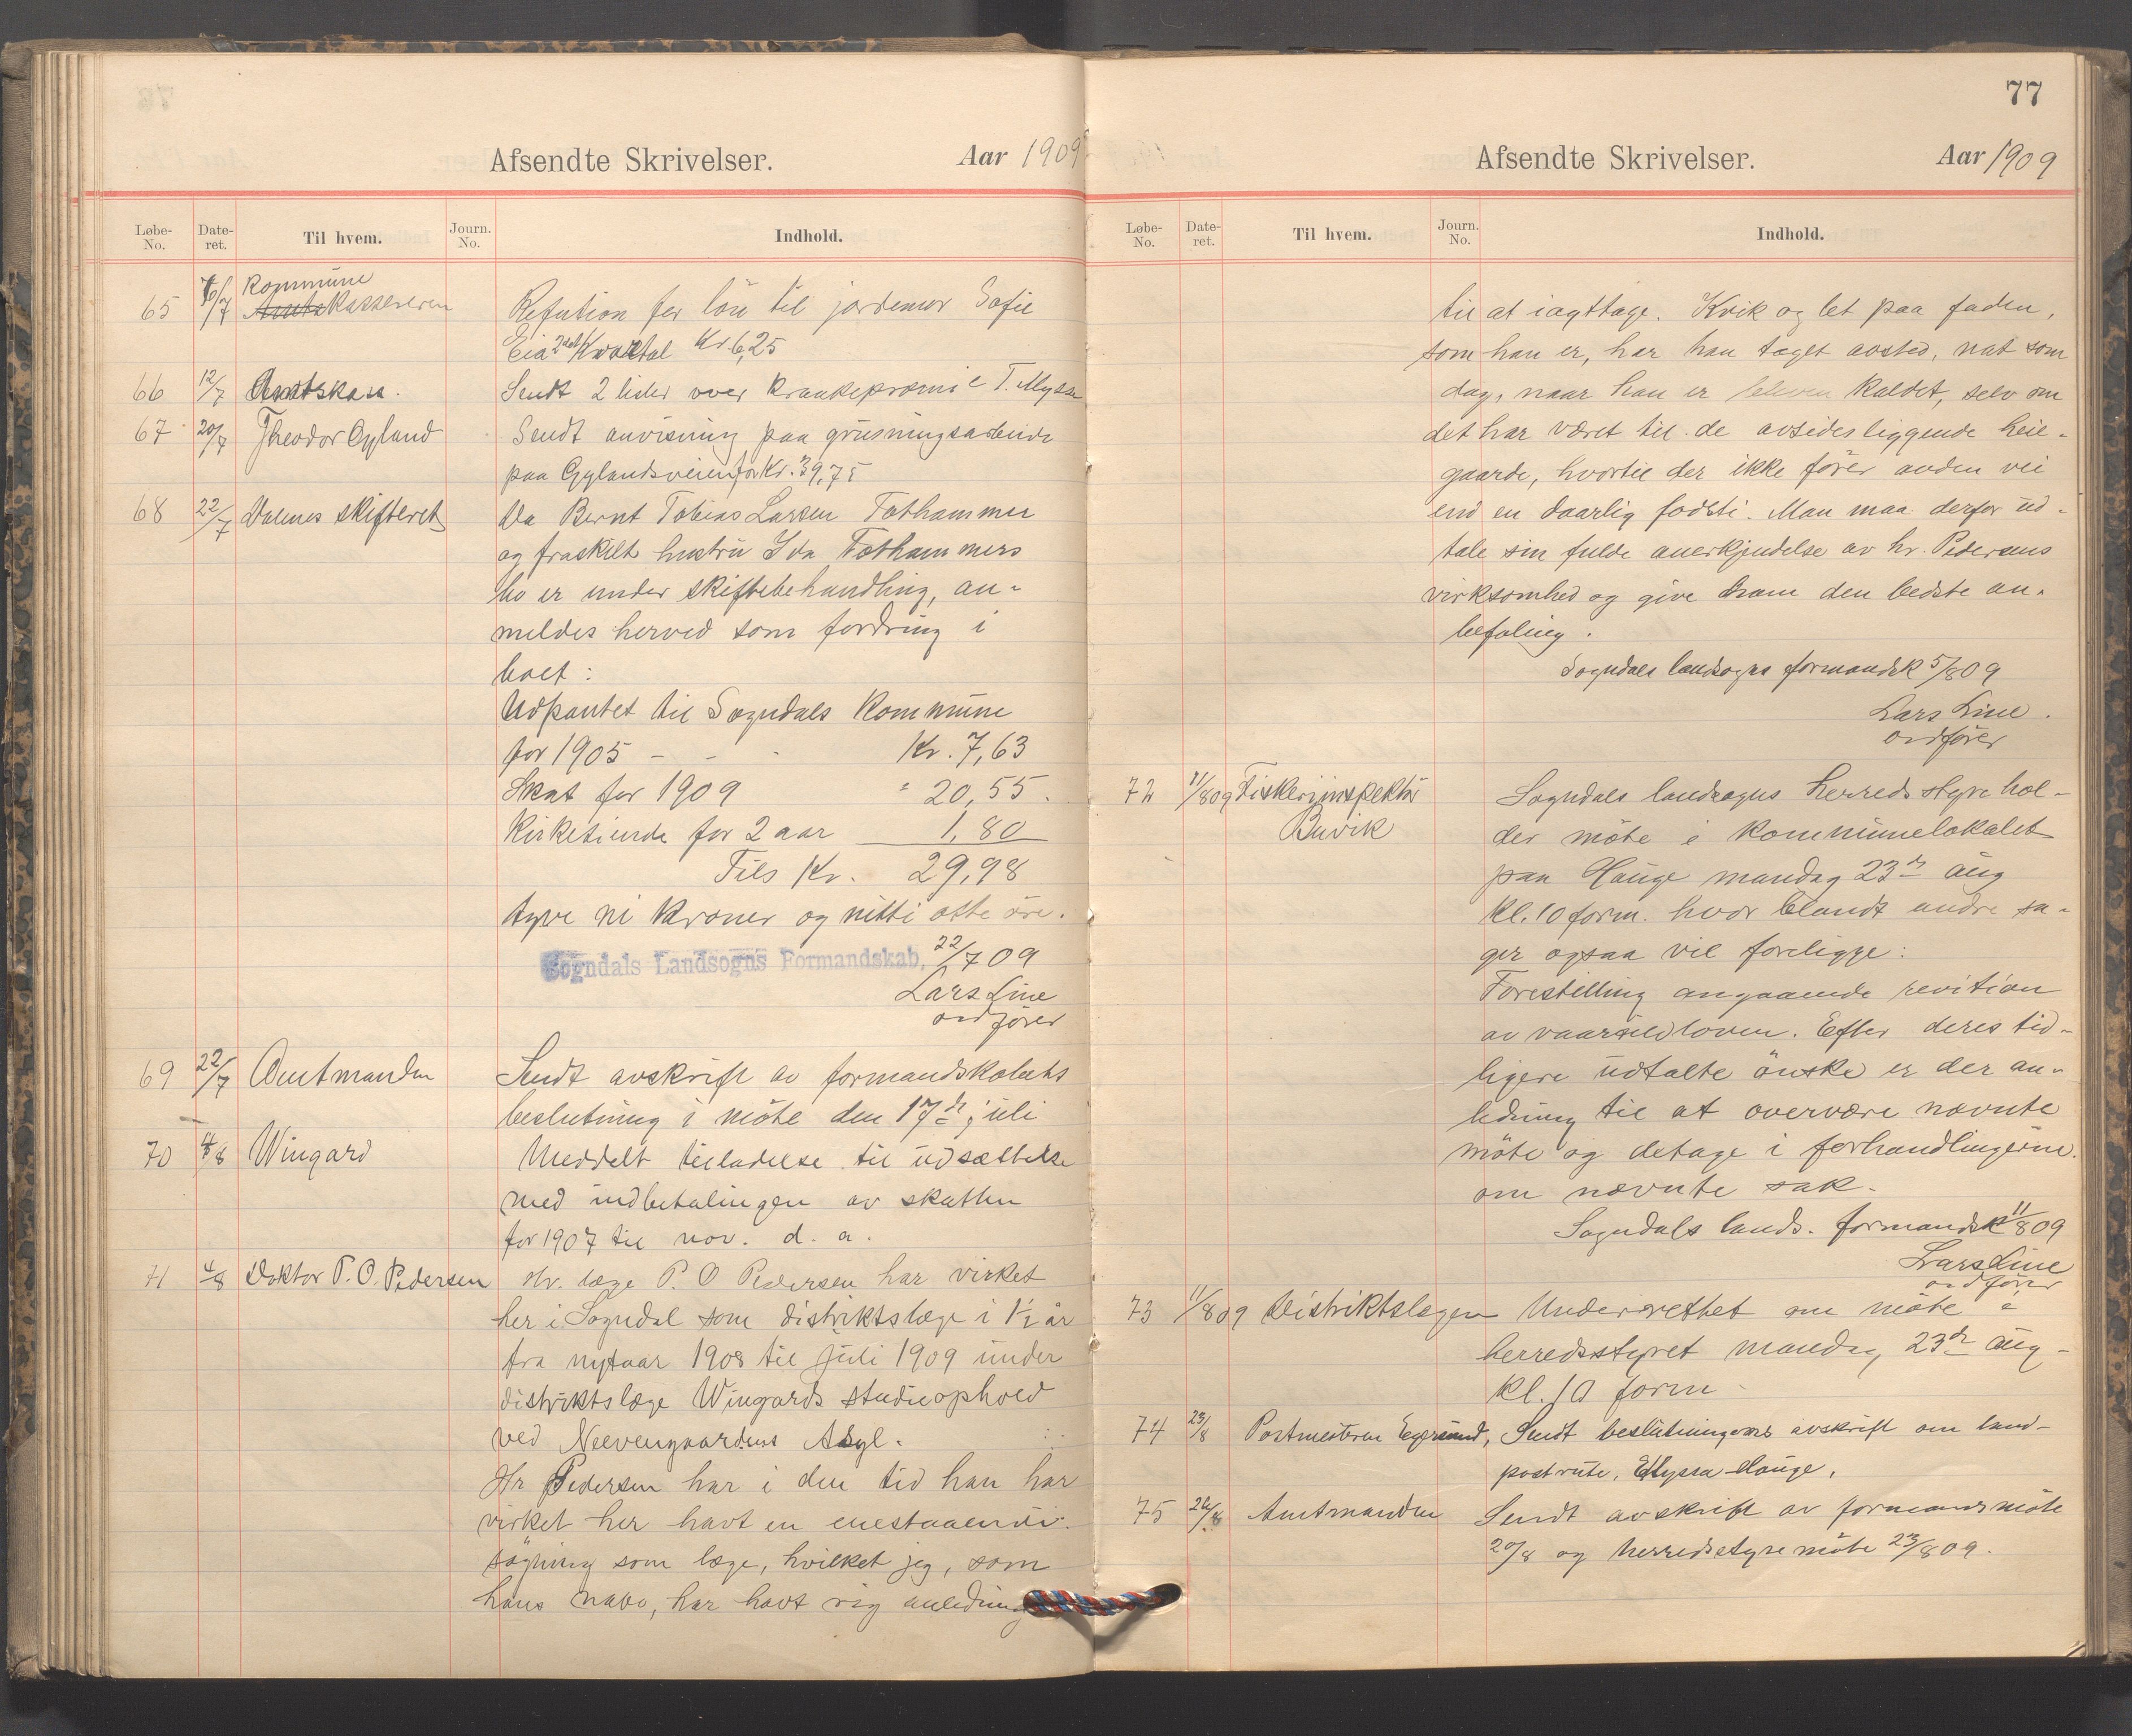 Afsendte Skrivelser. Aar 1909
Løbe-No. Dateret. Til hvem. Journ. No. Indhold.
65 10/7 Kommune Amtskassereren Refution for løn til jordemor Sofie
Eia 2det Kvartal Kr. 6,25
66 12/7 Amtskass. Sendt 2 lister over krankepræmie T. Mysse
67 20/7 Theodor Gyland Sendt anvisning paa grusningsarbeide
paa Gylandsveien for Kr. 39,75
68 22/7 Dalenes skifteret Da Bernt Tobias Larsen Tothammer
og fraskilt hustru Ida Tothammers
bo er under skiftebehandling, an-
meldes herved som fordring i
boet:
Udpantet til Sogndals kommune
for 1905 - - - Kr. 7,63
Skat for 1909 " 20,55.
Kirketiende for 2 aar 1,80
Tils Kr. 29,98
tyve ni kroner og nitti otte øre.
Sogndals Landsogns Formandskab, 22/7 09
Lars Line
ordfører
69 22/7 Amtmanden Sendt avskrift av formandskabets
beslutning i møte den 17de juli
70 4/8 Wingard Meddelt tilladelse til udsættelse
med indbetalingen av skatten
for 1907 til nov. d. a.
71 4/8 Doktor P. O. Pedersen Hr. læge P. O Pedersen har virket
her i Sogndal som distriktslæge i 1½ år
fra nytaar 1908 til juli 1909 under
distriktslæge Wingards studieophold
ved Neevengaardens Asyl.
Hr Pedersen har i den tid han har
virket her havt en enestaaende
søgning som læge, hvilket jeg, som
hans nabo, har havt rig anledning
77
Afsendte Skrivelser. Aar 1909
Løbe-No. Dateret. Til hvem. Journ. No. Indhold.
til at iagttage. Kvik og let paa foden,
som han er, har han taget avsted, nat som
dag, naar han er bleven kaldet, selv om
det har været til de avsidesliggende heie-
gaarde, hvortil der ikke fører anden vei
end en daarlig fodsti. Man maa derfor ud-
tale sin fulde anerkjendelse av hr. Pedersens
virksomhed og give ham den bedste an-
befaling.
Sogndals landsogns formandsk 5/8 09
Lars Line.
ordfører
72 11/8 09 Fiskeriinspektør Sogndals landsogns herredsstyre hol-
Buvik der møte i kommunelokalet
paa Hauge mandag 23de aug
kl. 10 form. hvor blandt andre sa-
ger ogsaa vil foreligge:
Forestilling angaaende revition
av vaarsildloven. Efter deres tid-
ligere udtalte ønske er der an-
ledning til at overvære nævnte
møte og detage i forhandlingerne
om nævnte sak.
Sogndals lands. formandsk 11/8 09
Lars Line
ordfører
73 11/8 09 Distriktslægen Underrettet om møte i
herredsstyret mandag 23de aug -
kl. 10 form
74 23/8 Postmesteren Egersund, Sendt beslutningens avskrift om land-
postrute, Elyssa Hauge.
75 24/8 Amtmanden Sendt avskrift av formandsmøte
20/8 og herredsstyremøte 23/8 09.